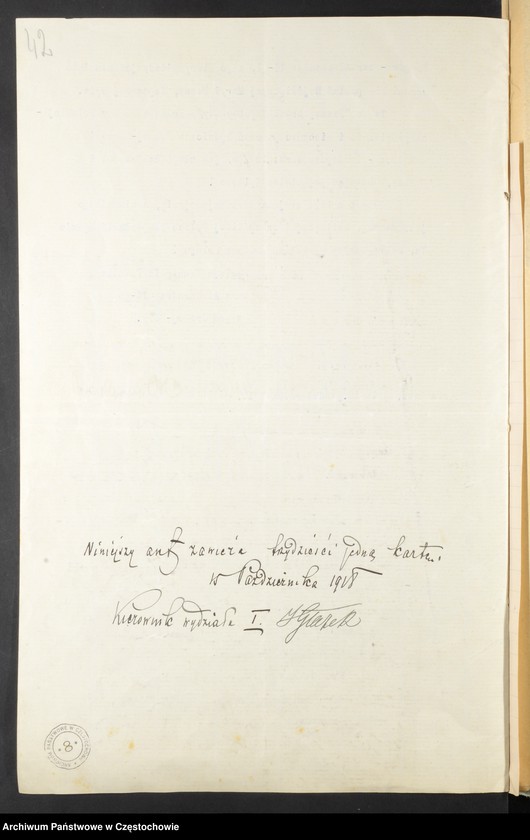 42
Niniejszy akt zawiera trzydzieści jedną kartę.
15 Października 1918
Kierownik wydziału I.
PAŃSTWOWE W CZĘSTOCHOWIE
8
Archiwum Państwowe w Częstochowie